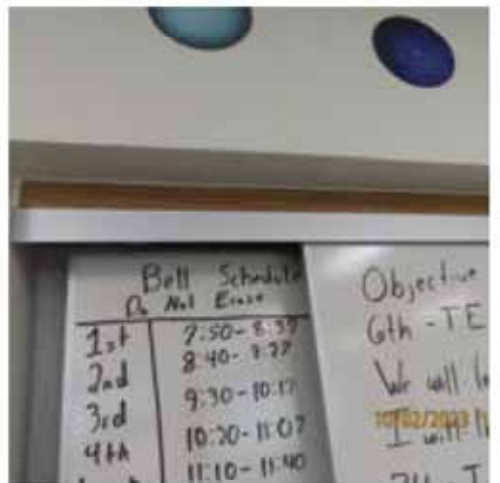 Bell Schedule
Do Not Erase
1st 7:50-8:37
2nd 8:40-9:27
3rd 9:30-10:17
4th 10:20-11:07
11:10-11:40
Objective
6th - TE
We will
10/02/2023
I will